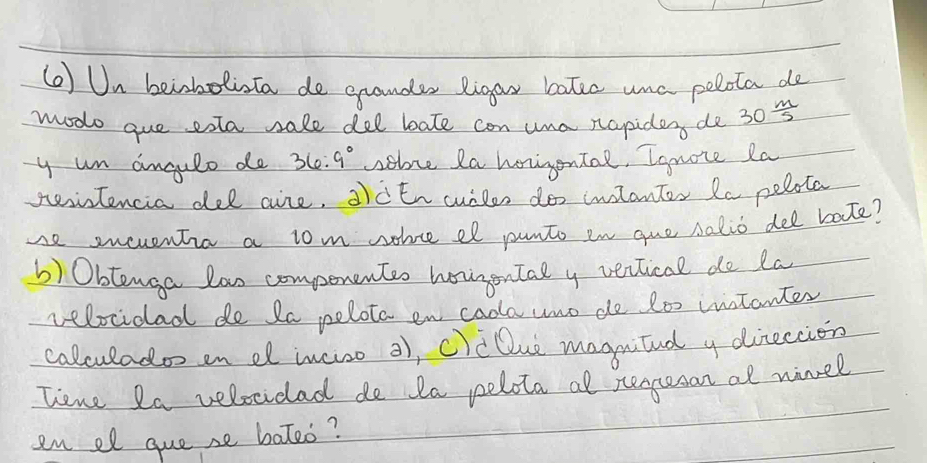 6) Un beisbolista de grandes ligas batea una pelota de
modo que esta sale del bate con una rapidez de 30 m/s
y un ángulo de 36.9° sobre la horizontal. Ignore la
resistencia del aire. a) ¿En cuáles dos instantes la pelota
se encuentra a 10 m sobre el punto en que salió del bate?
b) Obtenga las componentes horizontal y vertical de la
velocidad de la pelota en cada uno de los instantes
calculados en el inciso a), c) ¿Qué magnitud y dirección
Tiene la velocidad de la pelota al regresar al nivel
en el que se bateó?